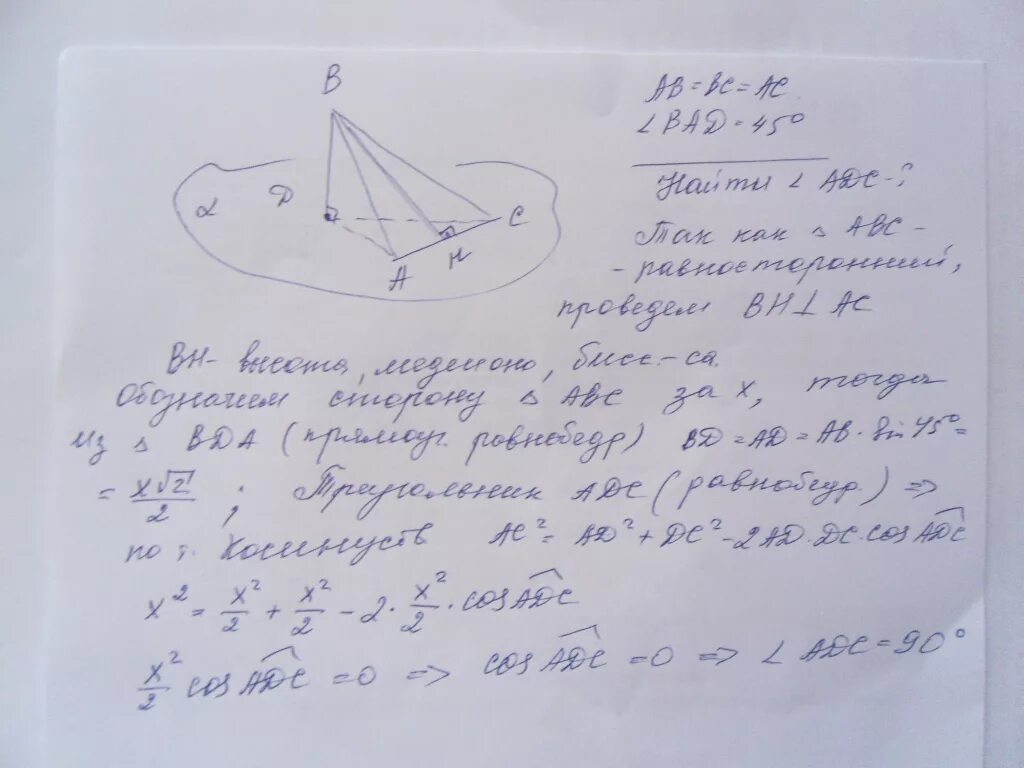 B
α
D
C
A
H
AB = BC = AC
∠BAD = 45°
Найти ∠ ADC - ?
Так как △ ABC -
- равносторонний,
проведем BH ⊥ AC
BH - высота, медиана, бисс-са.
Обозначим сторону △ ABC за x, тогда
Из △ BDA (прямоуг. равнобедр) BD = AD = AB · Sin 45° =
= x√2/2 ; Треугольник ADC (равнобедр.) ⇒
по т. Косинусов AC² = AD² + DC² - 2AD · DC · cos ADC
x² = x²/2 + x²/2 - 2 · x²/2 · cos ADC
x²/2 cos ADC = 0 ⇒ cos ADC = 0 ⇒ ∠ ADC = 90°